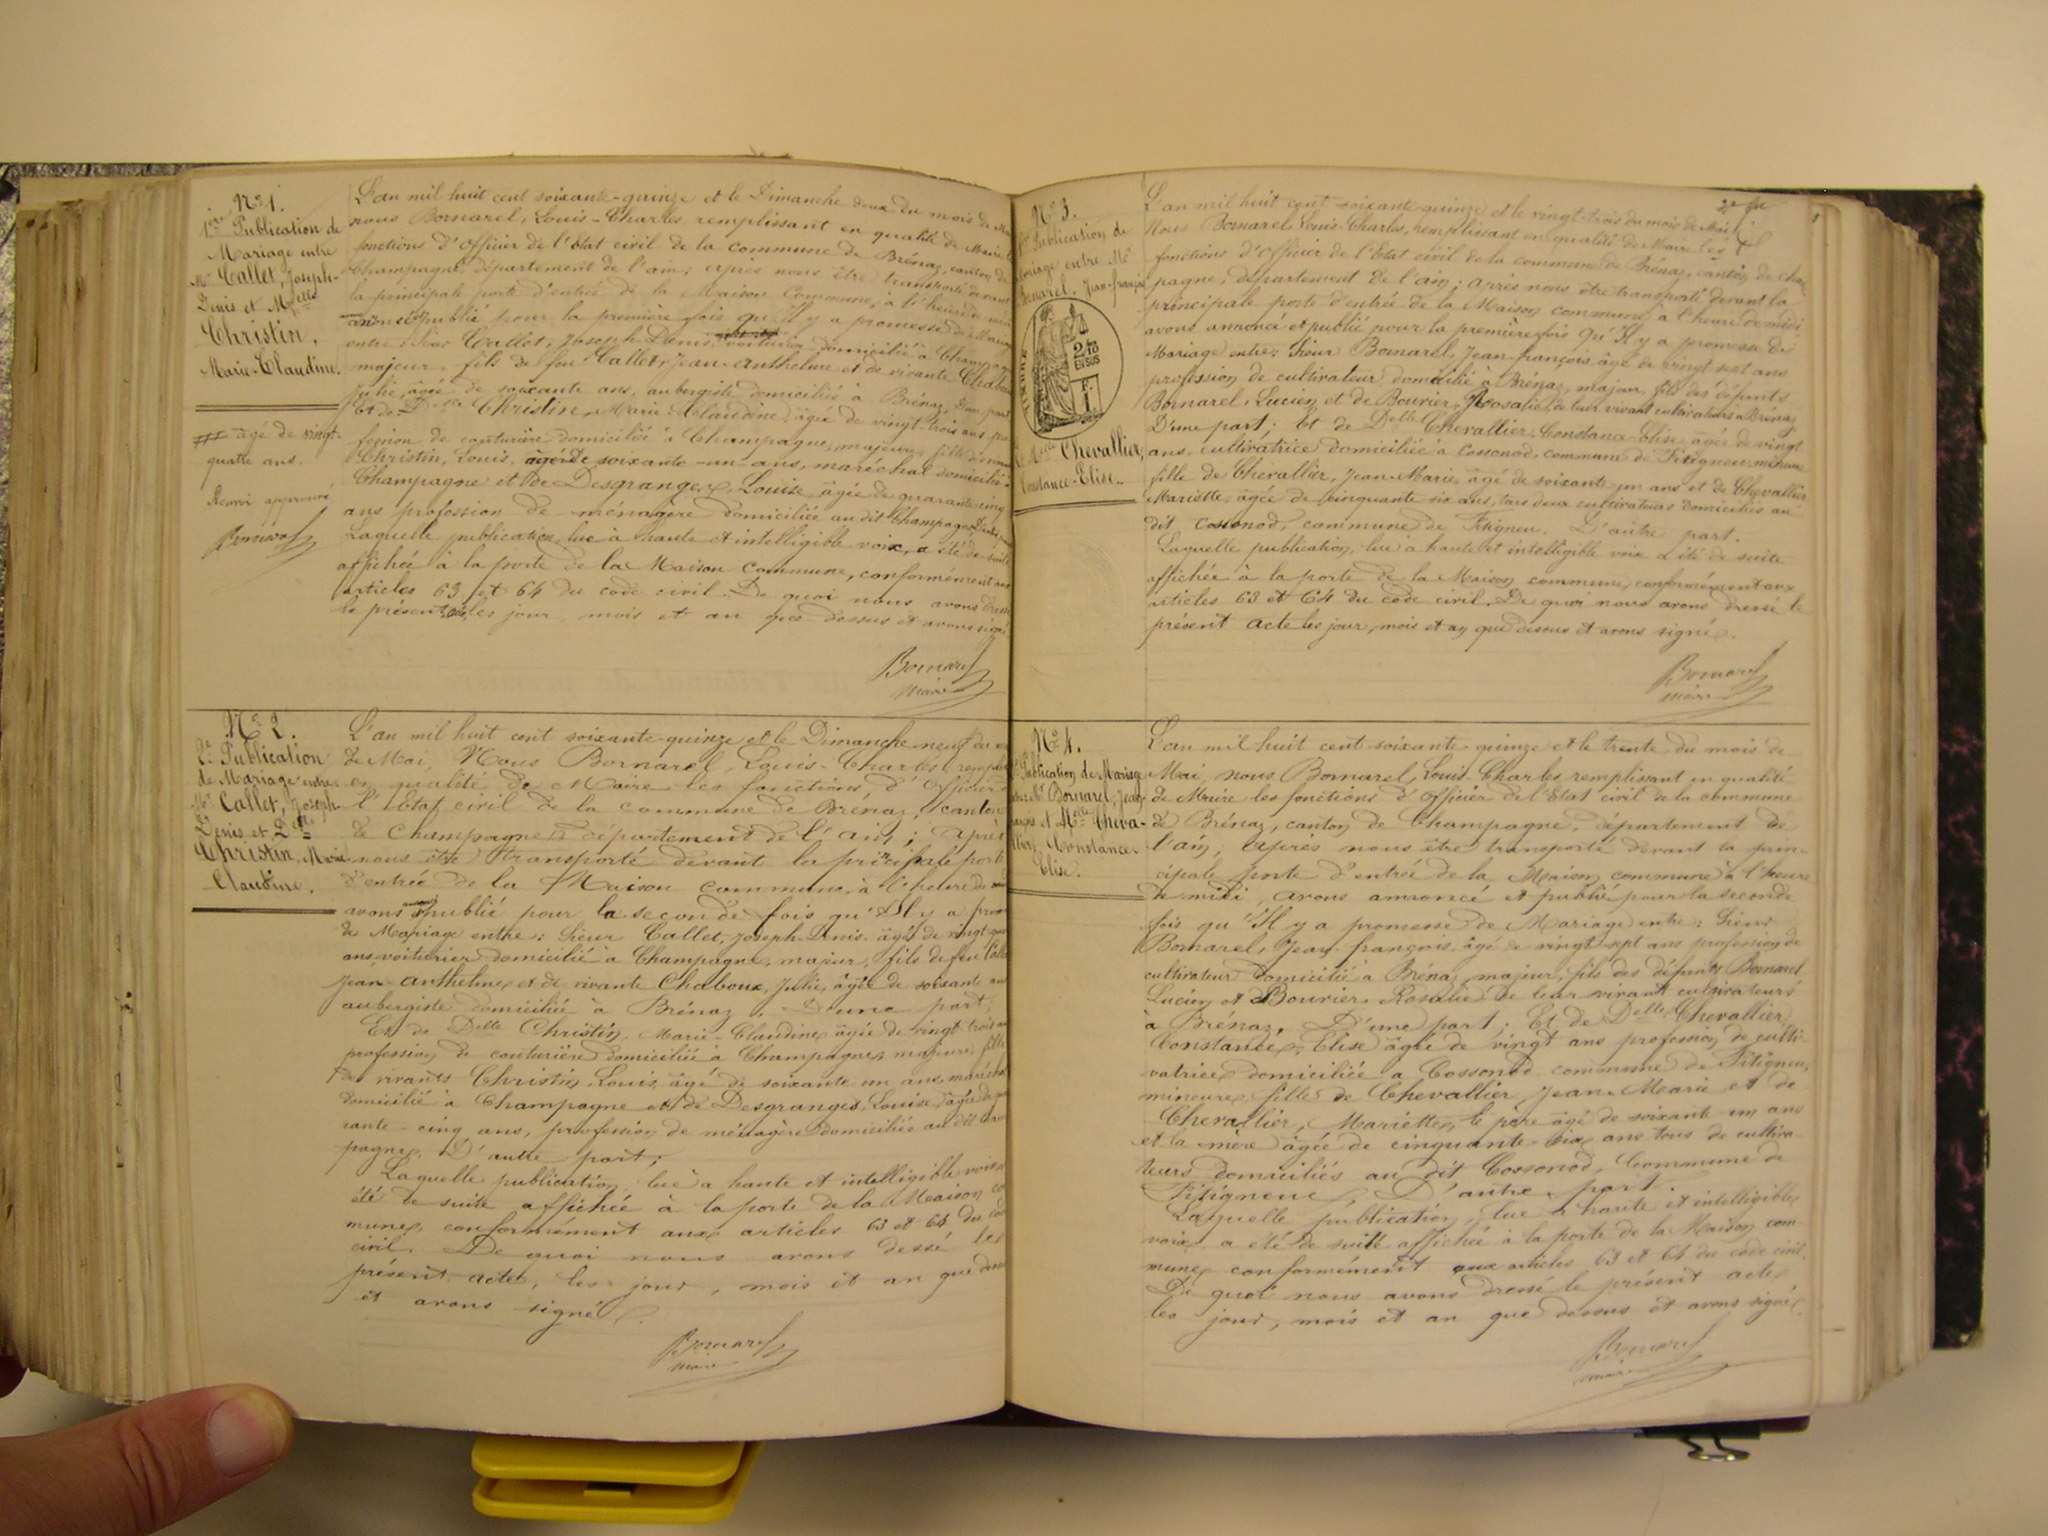 N° 1.
1ère Publication de
Mariage entre
Mr Callet, Joseph-
Denis et Melle
Christin,
Marie-Claudine.
âgé de vingt-
quatre ans.
Renvoi approuvé
Bornarel
L'an mil huit cent soixante-quinze et le Dimanche deux du mois de
nous Bornarel, Louis-Charles remplissant en qualité de Maire
fonctions d'Officier de l'Etat civil de la commune de Brénaz, canton de
Champagne, département de l'ain; après nous être transporté devant
la principale porte d'entrée de la Maison Commune, à l'heure de
annoncé et publié pour la première fois qu'il y a promesse de
entre: Sieur Callet, Joseph-Denis voiturier domicilié à Champagne
majeur, fils de feu Callet, Jean-Anthelme et de vivante
Julie, âgée de soixante ans, aubergiste domiciliée à Brénaz, D'une part
Et de Delle Christin, Marie-Claudine, âgée de vingt-trois ans,
fession de couturière domiciliée à Champagne, majeure, fille de
Christin, Louis, âgé de soixante-un-ans, maréchal domicilié
Champagne et de Desgranges, Louise âgée de quarante-cinq
ans profession de ménagère domiciliée au dit Champagne,
Laquelle publication, lue à haute et intelligible voix, a été de
affichée à la porte de la Maison Commune, conformément aux
articles 63 et 64 du code civil. De quoi nous avons
le présent acte, les jour, mois et an que dessus et avons signé
Bornarel
maire
N° 2.
2e Publication
de Mariage entre
Mr Callet, Joseph-
Denis et Delle
Christin, Marie
Claudine.
L'an mil huit cent soixante-quinze et le Dimanche neuf du
de Mai, Nous Bornarel, Louis-Charles,
en qualité de Maire les fonctions d'Officier
l'Etat civil de la commune de Brénaz, canton
de Champagne département de l'ain; après
nous être transporté devant la principale porte
d'entrée de la Maison commune, à l'heure de
avons annoncé publié pour la seconde fois qu'il y a
de Mariage entre: Sieur Callet, Joseph-Denis âgé de vingt
ans, voiturier domicilié à Champagne, majeur, fils de feu
Jean-Anthelme et de vivante Chaboux, Julie, âgée de soixante ans
aubergiste domiciliée à Brénaz, D'une part,
Et de Delle Christin, Marie-Claudine âgée de vingt-trois
profession de couturière domiciliée à Champagne, majeure, fille
de vivants Christin, Louis, âgé de soixante-un ans, maréchal
domicilié à Champagne et de Desgranges, Louise âgée de
rante-cinq ans, profession de ménagère domiciliée au dit
pagne, D'autre part;
Laquelle publication, lue à haute et intelligible voix
été de suite affichée à la porte de la Maison
mune, conformément aux articles 63 et 64 du
civil. De quoi nous avons dessé le
présent acte, les jour, mois et an que
et avons signé.
Bornarel
maire
2e
N° 3.
Publication de
entre Mr
Bornarel, Jean-françois
2/10
EN SUS
Chevallier,
Constance-Elise.
L'an mil huit cent soixante-quinze et le vingt-trois du mois de Mai
Nous Bornarel Louis-Charles, remplissant en qualité de Maire les
fonctions d'Officier de l'Etat civil de la commune de Brénaz, canton de
pagne, département de l'ain; après nous être transporté devant la
principale porte d'entrée de la Maison commune à l'heure de midi
avons annoncé et publié pour la première fois qu'il y a promesse de
Mariage entre: Sieur Bornarel, Jean-françois âgé de vingt-sept ans
profession de cultivateur domicilié à Brénaz, majeur, fils des défunts
Bornarel, Lucien et de Bouvier, Rosalie, de leur vivant cultivateurs à Brénaz,
D'une part; Et de Delle Chevallier, Constance-Elise âgée de vingt
ans, cultivatrice domiciliée à Cossonod, commune de mineure
fille de Chevallier, Jean-Marie âgé de soixante-un ans et de Chevallier,
Mariette, âgée de cinquante-six ans, tous deux cultivateurs domiciliés au
dit Cossonod, commune de D'autre part.
Laquelle publication, lue à haute et intelligible voix a été de suite
affichée à la porte de la Maison commune, conformément aux
articles 63 et 64 du code civil. De quoi nous avons dressé le
présent acte les jour, mois et an que dessus et avons signé.
Bornarel
maire
N° 4.
Publication de Mariage
Mr Bornarel, Jean-
et Melle Cheva-
Constance-
Elise.
L'an mil huit cent soixante-quinze et le trente du mois de
Mai, nous Bornarel, Louis-Charles remplissant en qualité
de Maire les fonctions d'Officier de l'Etat civil de la commune
de Brénaz, canton de Champagne, département de
l'ain, après nous être transporté devant la prin-
cipale porte d'entrée de la Maison commune à l'heure
de midi, avons annoncé et publié pour la seconde
fois qu'il y a promesse de Mariage entre: Sieur
Bornarel, Jean-françois âgé de vingt-sept ans profession de
cultivateur domicilié à Brénaz, majeur, fils des défunts Bornarel
Lucien et de Bouvier Rosalie de leur vivant cultivateurs
à Brénaz, D'une part; Et de Delle Chevallier,
Constance-Elise âgée de vingt ans profession de culti-
vatrice domiciliée à Cossonod commune de
mineure, fille de Chevallier, Jean-Marie et de
Chevallier, Mariette, le père âgé de soixante-un ans
et la mère âgée de cinquante-six ans tous de cultiva-
teurs domiciliés au dit Cossonod, Commune de
D'autre part.
Laquelle publication, lue à haute et intelligible
voix, a été de suite affichée à la porte de la Maison com-
mune, conformément aux articles 63 et 64 du code civil.
De quoi nous avons dressé le présent acte
les jour, mois et an que dessus et avons signé.
Bornarel
maire